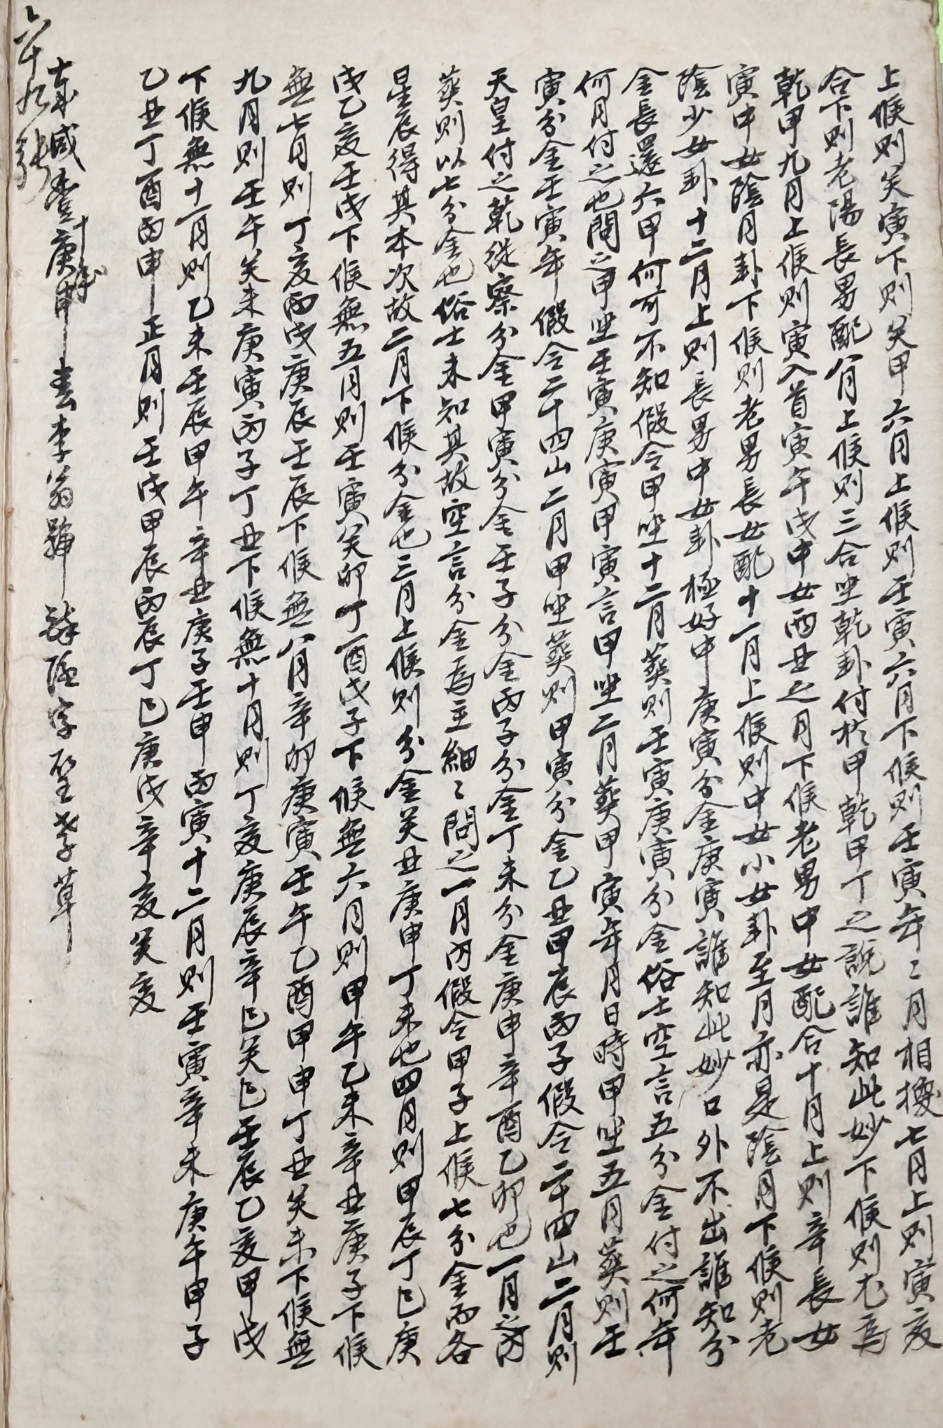 上候則癸寅下則癸甲六月上候則壬寅六月下候則壬寅年々月相換七月上則寅亥
合下則老陽長男配八月上候則三合坐乾卦付於甲乾甲丁之說誰知此妙下候則尤爲
乾甲九月上候則寅入首寅午戌中女西丑之月下候老男中女配合十月上則辛長女
寅中女陰月卦下候則老男長女配十一月上候則中女小女卦至月亦是陰月下候則老
陰少女卦十二月上則長男中女卦極好中庚寅分金庚寅誰知此妙口外不出誰知分
金長還六甲何可不知假令甲坐十二月葬則壬寅庚寅分金俗士空言五分金付之何年
何月付之也問之甲坐壬寅庚寅甲寅言甲坐二月葬甲寅年月日時甲坐五月葬則壬
寅分金壬寅年假令二十四山二月甲坐葬則甲寅分金乙丑甲辰丙子假令二十四山二月則
天皇付之乾從察分金甲寅分金壬子分金丙子分金丁未分金庚申辛酉乙卯也一月之內
葬則以七分金也俗士未知其故空言分金爲主細々問之一月內假令甲子上候七分金而各
星辰得其本次故二月下候分金也三月上候則分金癸丑庚申丁未也四月則甲辰丁巳庚
戌乙亥壬戌下候無五月則壬寅癸卯丁酉戊子下候無六月則甲午乙未辛丑庚子下候
無七月則丁亥丙戌庚辰壬辰下候無八月辛卯庚寅壬午乙酉甲申丁丑癸未下候無
九月則壬午癸未庚寅丙子丁丑下候無十月則丁亥庚辰辛巳癸巳壬辰乙亥甲戌
下候無十一月則乙未壬辰甲午辛丑庚子壬申丙寅十二月則壬寅辛未庚午甲子
乙丑丁酉丙申正月則壬戌甲辰丙辰丁巳庚戌辛亥癸亥
咸豐十年庚申 李翁 字 草
六十九張